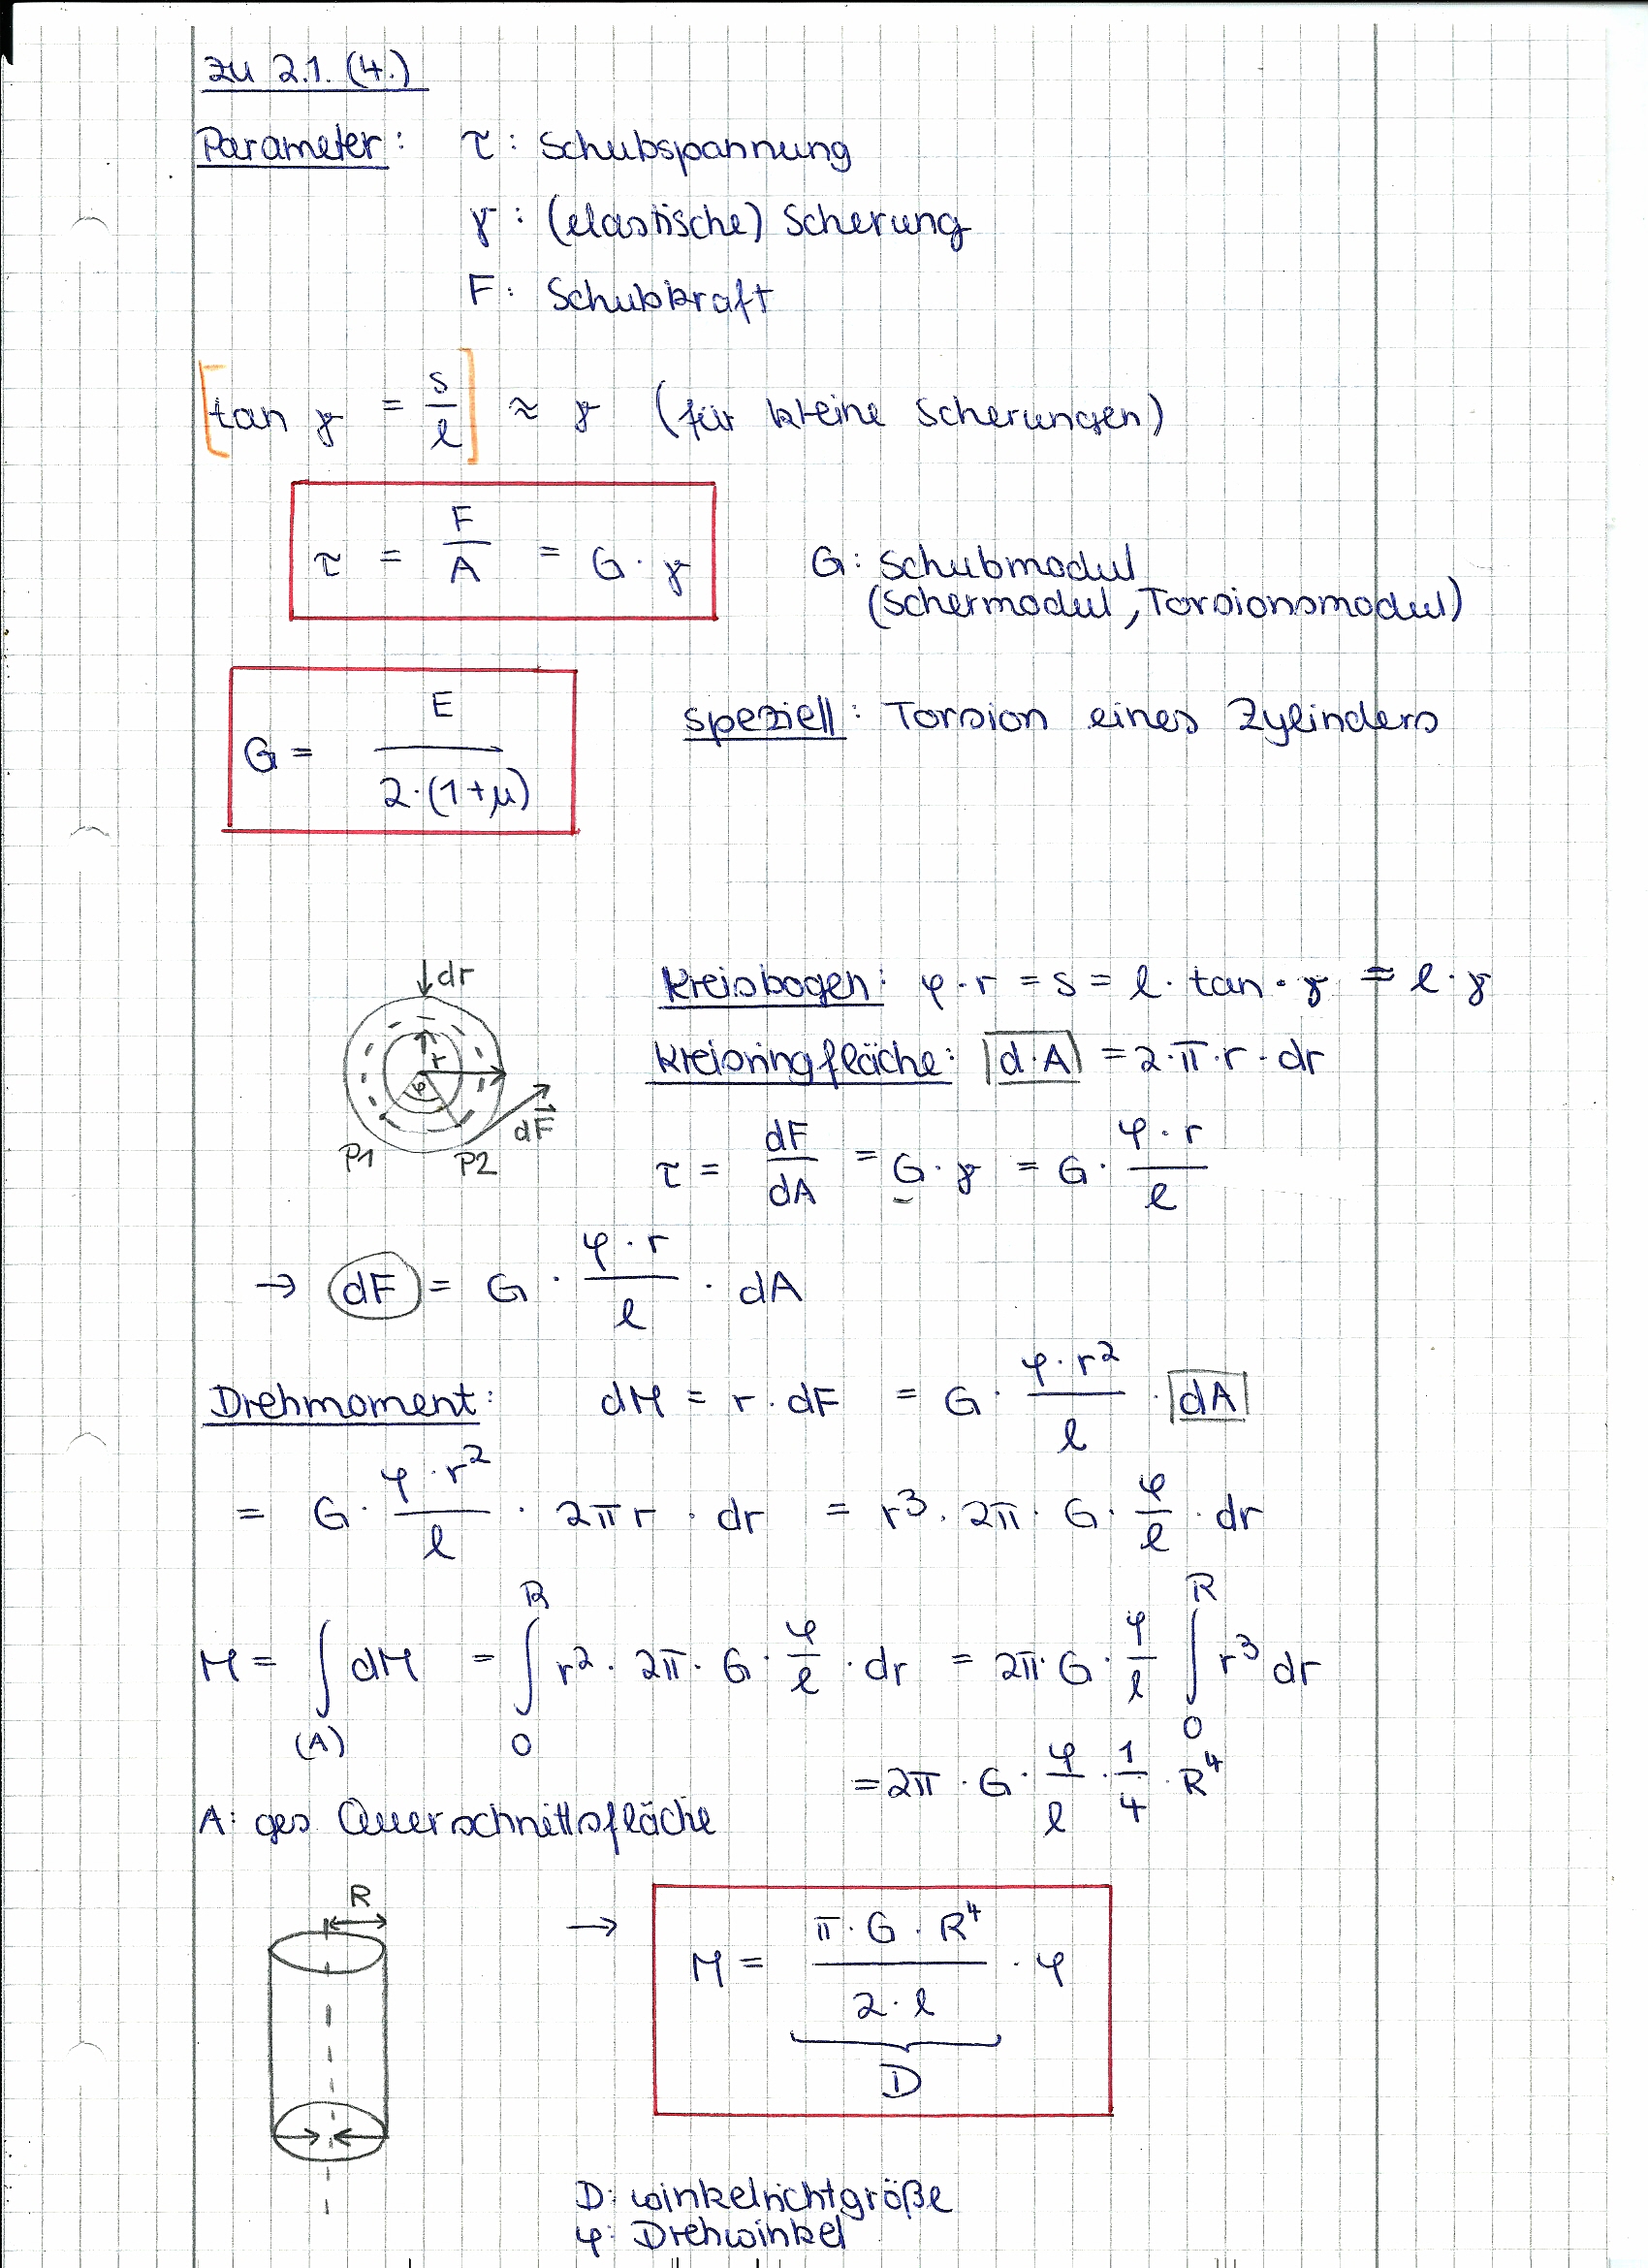 zu 2.1. (4.)
Parameter: τ: Schubspannung
γ: (elastische) Scherung
F: Schubkraft
[tan γ = s/l] ≈ γ (für kleine Scherungen)
τ = F/A = G · γ
G: Schubmodul
(Schermodul, Torsionsmodul)
G = E / 2·(1+μ)
speziell: Torsion eines Zylinders
dr
r
φ
dF⃗
P1
P2
Kreisbogen: φ·r = s = l · tan · γ = l · γ
Kreisringfläche: |d·A| = 2·π·r·dr
τ = dF/dA = G · γ = G · φ·r/l
→ dF = G · φ·r/l · dA
Drehmoment: dM = r · dF = G · φ·r²/l · |dA|
= G · φ·r²/l · 2πr · dr = r³ · 2π · G · φ/l · dr
M = ∫(A) dM = ∫₀ᴿ r² · 2π · G · φ/l · dr = 2π · G · φ/l ∫₀ᴿ r³ dr
= 2π · G · φ/l · 1/4 · R⁴
A: ges Querschnittsfläche
R
→ M = π · G · R⁴ / 2·l · φ
D
D: Winkelrichtgröße
φ: Drehwinkel